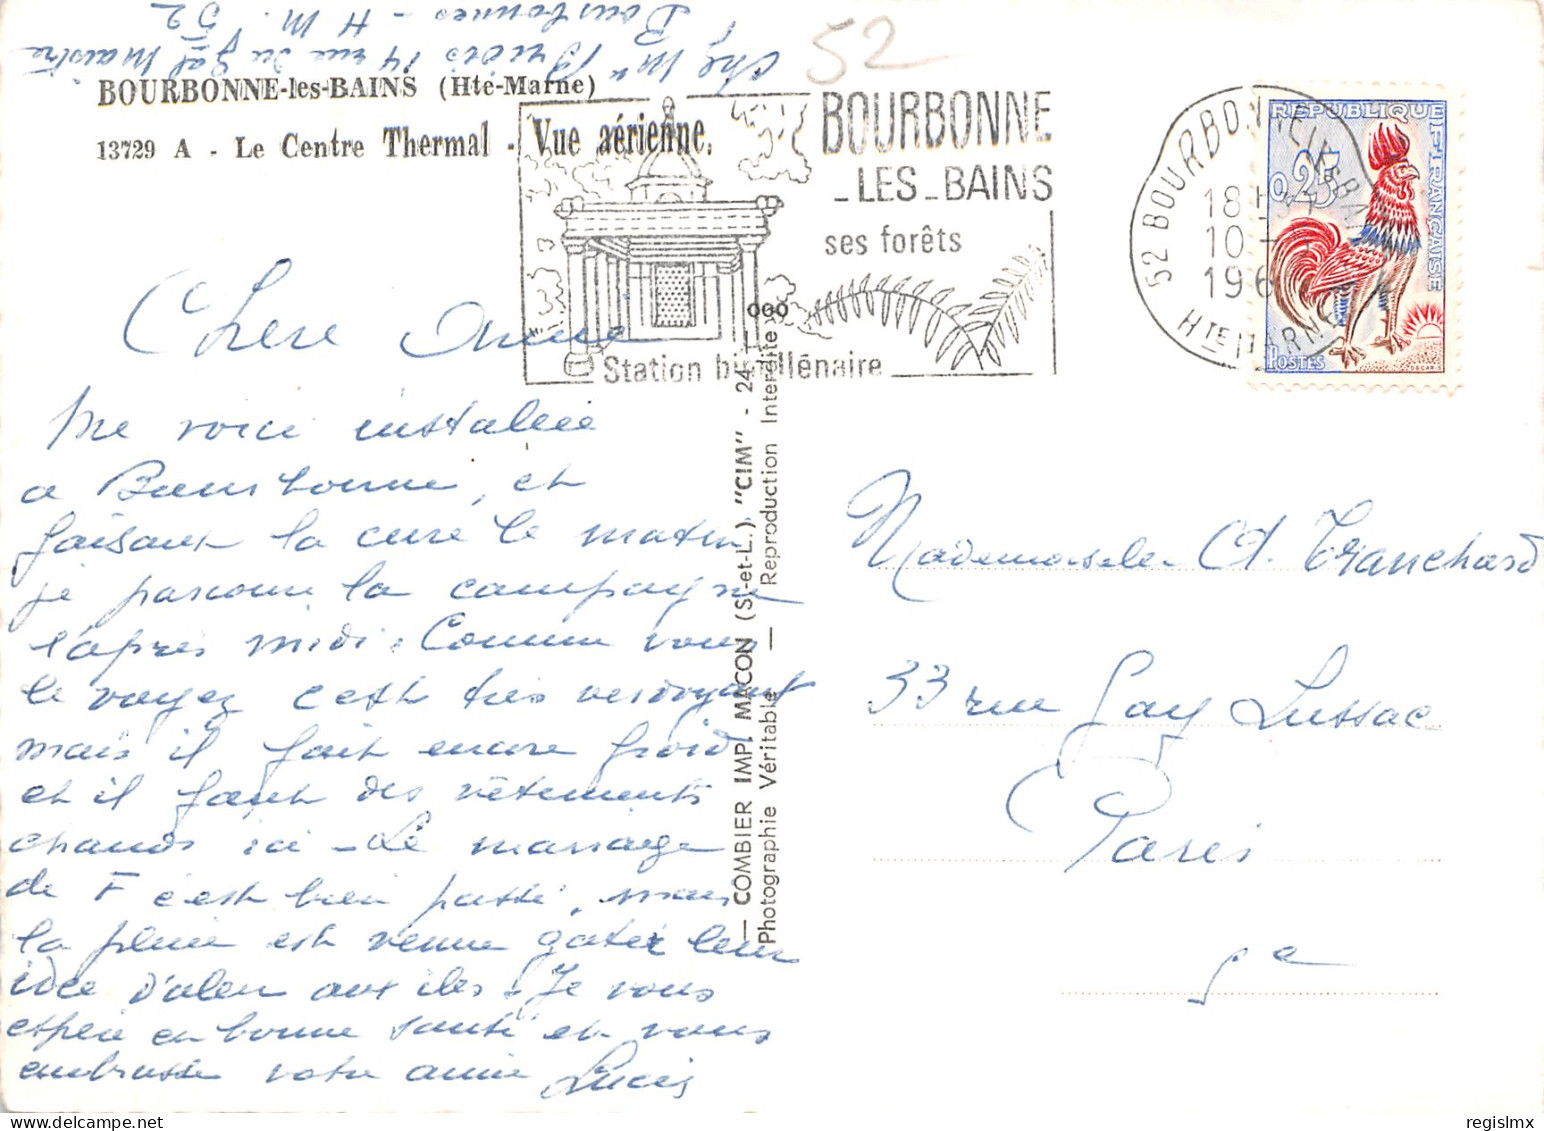 Chez Mme 14 rue du Gal Maistre
Bourbonnes - H M. 52
52
BOURBONNE-les-BAINS (Hte-Marne)
13729 A - Le Centre Thermal - Vue aérienne.
BOURBONNE
-LES-BAINS
ses forêts
Station bimillénaire
52 BOURBONNE LES BAINS
18H
10-
196
HTE MARNE
REPUBLIQUE FRANÇAISE
0,25
POSTES
DECARIS
Chère Anne
Me voici installée
a Bourbonne, et
faisant la cure le matin
je parcours la campagne
l'après midi. Comme vous
le voyez c'est très verdoyant
mais il fait encore froid
et il faut des vêtements
chauds ici - Le mariage
de F c'est bien passé, mais
la pluie est venue gater leur
idée d'aller aux iles ! Je vous
espère en bonne santé et vous
embrasse votre amie Lucie
— COMBIER IMP. MACON (S.-et-L.) "CIM" - 24
Photographie Véritable — Reproduction Interdite
Mademoiselle A. Tranchard
33 rue Gay Lussac
Paris
5e
regislmx